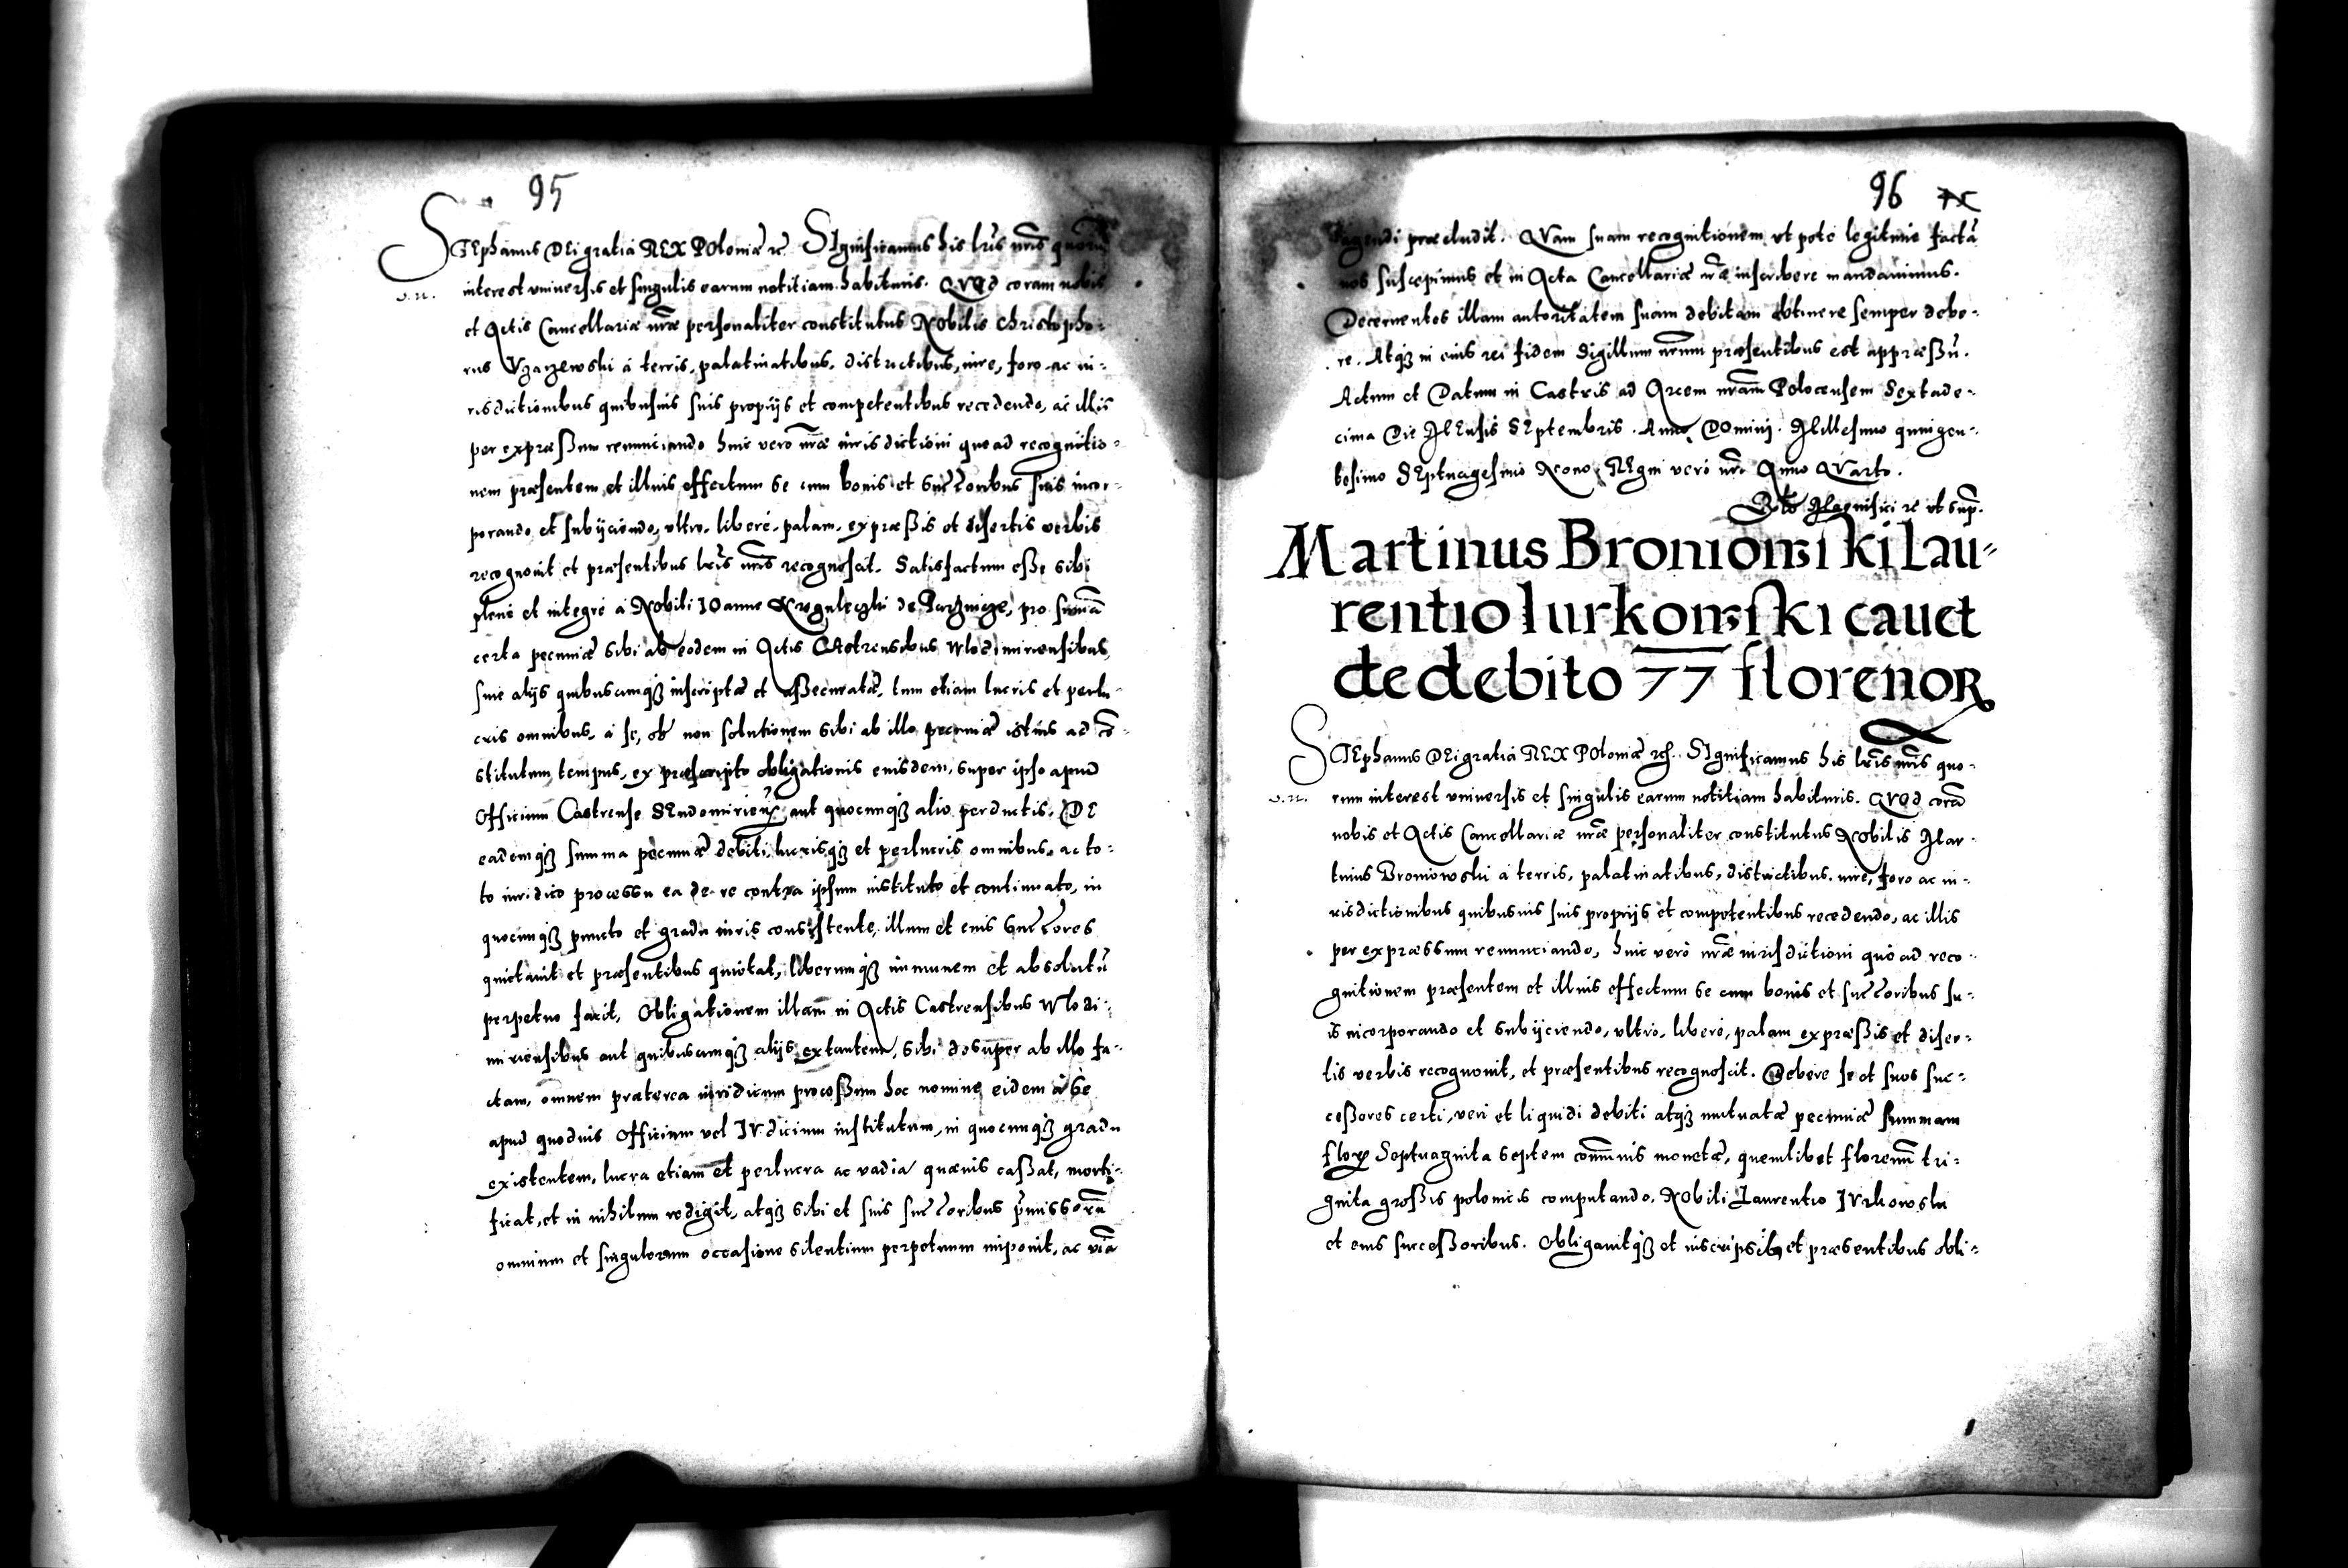 95
STEphanus DEi gratiâ REX POloniæ rc̃. SIgnificamus his lr̃is nr̃is quorũ
interest vniuersis et singulis earum notitiam habituris. QVOd coram nobis
v.u.
et Actis Cancellariæ nr̃æ personaliter constitutus Nobilis Christopho-
rus à terris, palatinatibus, districtibus, iure, foro ac iu-
risdictionibus quibusuis suis proprijs et competentibus recedendo, ac illis
per expræßum renunciando huic verò nr̃æ iurisdictioni quo ad recognitio-
nem præsentem et illius effectum se cum bonis et Succ̃oribus suis incor-
porando et subijciendo, vltrò, liberè, palam, expræßis et disertis verbis
recognouit et præsentibus lr̃is nr̃is recognoscit. Satisfactum eße sibi
plenè et integrè à Nobili IOanne de pro summâ
certa pecuniæ sibi ab eodem in Actis CAstrensibus Wlodimiriensibus,
siue alijs quibuscunqꝫ inscriptæ et aßecuratæ, tum etiam lucris et perlu-
cris omnibus, à se, ob non solutionem sibi ab illo pecuniæ istius ad cõ-
stitutum tempus, ex præscripto obligationis eiusdem, super ipso apud
Officium Castrense SEndomirien̄ aut quocunqꝫ alio perductis. DE
eademqꝫ summa pecuniæ debiti, lucrisqꝫ et perlucris omnibus, ac to-
to iuridico processu ea de re contra ipsum instituto et continuato, in
quocunqꝫ puncto et gradu iuris consistente, illum et eius Succ̃ores
quietauit et præsentibus quietat, liberumqꝫ immunem et absolutũ
perpetuo facit, Obligationem illam in Actis Castrensibus Wlodi-
miriensibus aut quibuscunqꝫ alijs extantem, sibi desuper ab illo fa-
ctam, omnem præterea iuridicum proceßum hoc nomine eidem à se
apud quoduis Officium vel IVdicium institutum, in quocunqꝫ gradu
existentem, lucra etiam et perlucra ac vadia quæuis caßat, morti-
ficat, et in nihilum redigit, atqꝫ sibi et suis succ̃oribus p̃missorũ
omnium et singulorum occasione silentium perpetuum imponit, ac viã
96
agendi præcludit. QVam suam recognitionem vt pote legitimè factã
nos suscepimus et in Acta Cancellariæ nr̃æ inscribere mandauimus.
Decernentes illam autoritatem suam debitam obtinere semper debe-
re. Atqꝫ in eius rei fidem Sigillum nr̃um præsentibus est appræßũ.
Actum et Datum in Castris ad Arcem nr̃am Polocensem Sextade-
cima Die MEnsis SEptembris. Anno DOmini. Millesimo quingen-
tesimo SEptuagesimo Nono, REgni verò nr̃i Anno QVarto.
Magnifici rc̃ vt sup̃.
Martinus Broniowski Lau-
rentio Iurkowski cauet
de debito 77 florenoR
STEphanus DEi gratiâ REX POloniæ rc̃. SIgnificamus his lr̃is nr̃is quo-
rum interest vniuersis et singulis earum notitiam habituris. QVOd corã
v.u.
nobis et Actis Cancellariæ nr̃æ personaliter constitutus Nobilis Mar-
tinus Broniowski à terris, palatinatibus, districtibus, iure, foro ac iu-
risdictionibus quibusuis suis proprijs et competentibus recedendo, ac illis
per expræssum renunciando, huic verò nr̃æ iurisdictioni quo ad reco-
gnitionem præsentem et illius effectum se cum bonis et succ̃oribus su-
is incorporando et subijciendo, vltrò, liberè, palam expræßis et diser-
tis verbis recognouit, et præsentibus recognoscit. Debere se et suos suc-
ceßores certi, veri et liquidi debiti atqꝫ mutuatæ pecuniæ summam
floꝝ Septuaginta septem com̃unis monetæ, quemlibet florenum tri-
ginta großis polonicis computando. Nobili Laurentio IVrkowski
et eius succeßoribus. Obligauitqꝫ et inscripsit, et præsentibus obli-